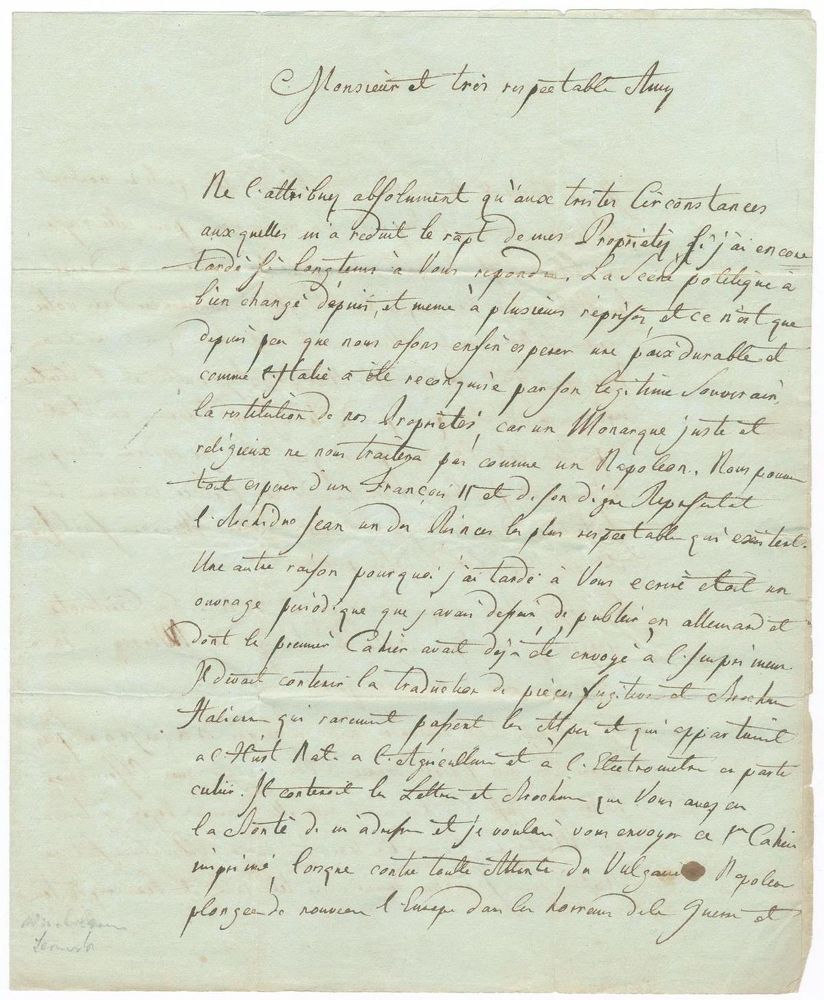 Monsieur et très respectable Amy
Ne l'attribuez absolument qu'aux tristes Circonstances
auxquelles m'a reduit le rapt de mes Proprietés, si j'ai encore
tardé si longtems à Vous repondre. La Scene politique à
bien changé depuis, et meme à plusieurs reprises, et ce n'est que
depuis peu que nous osons enfin esperer une paix durable et
comme l'Italie a été reconquise par son legitime Souverain,
la restitution de nos Proprietés, car un Monarque juste et
religieux ne nous traitera pas comme un Napoleon. Nous pouvons
tout esperer d'un François II et de son digne Represetat
l'Archiduc Jean un des Princes les plus respectables qui existent.
Une autre raison pourquoi j'ai tardé à Vous ecrire etoit un
ouvrage periodique que j'avais dessein de publier en allemand et
dont le premier Cahier avait déjà été envoyé à l'Imprimeur
Il devait contenir la traduction de pièces fugitives et Brochures
Italiennes qui rarement passent les Alpes et qui appartiennent
a l'Hist Nat. a l'Agriculture et à l'Electrometrie en parti
culier. Il contenoit les Lettres et Brochures que Vous avez eu
la Bonté de m'adresser et je voulais vous envoyer ce 1er Cahier
imprimé, lorsque contre toutte Attente du Vulgaire Napoleon
plongea de nouveau l'Europe dans les horreurs de la Guerre et